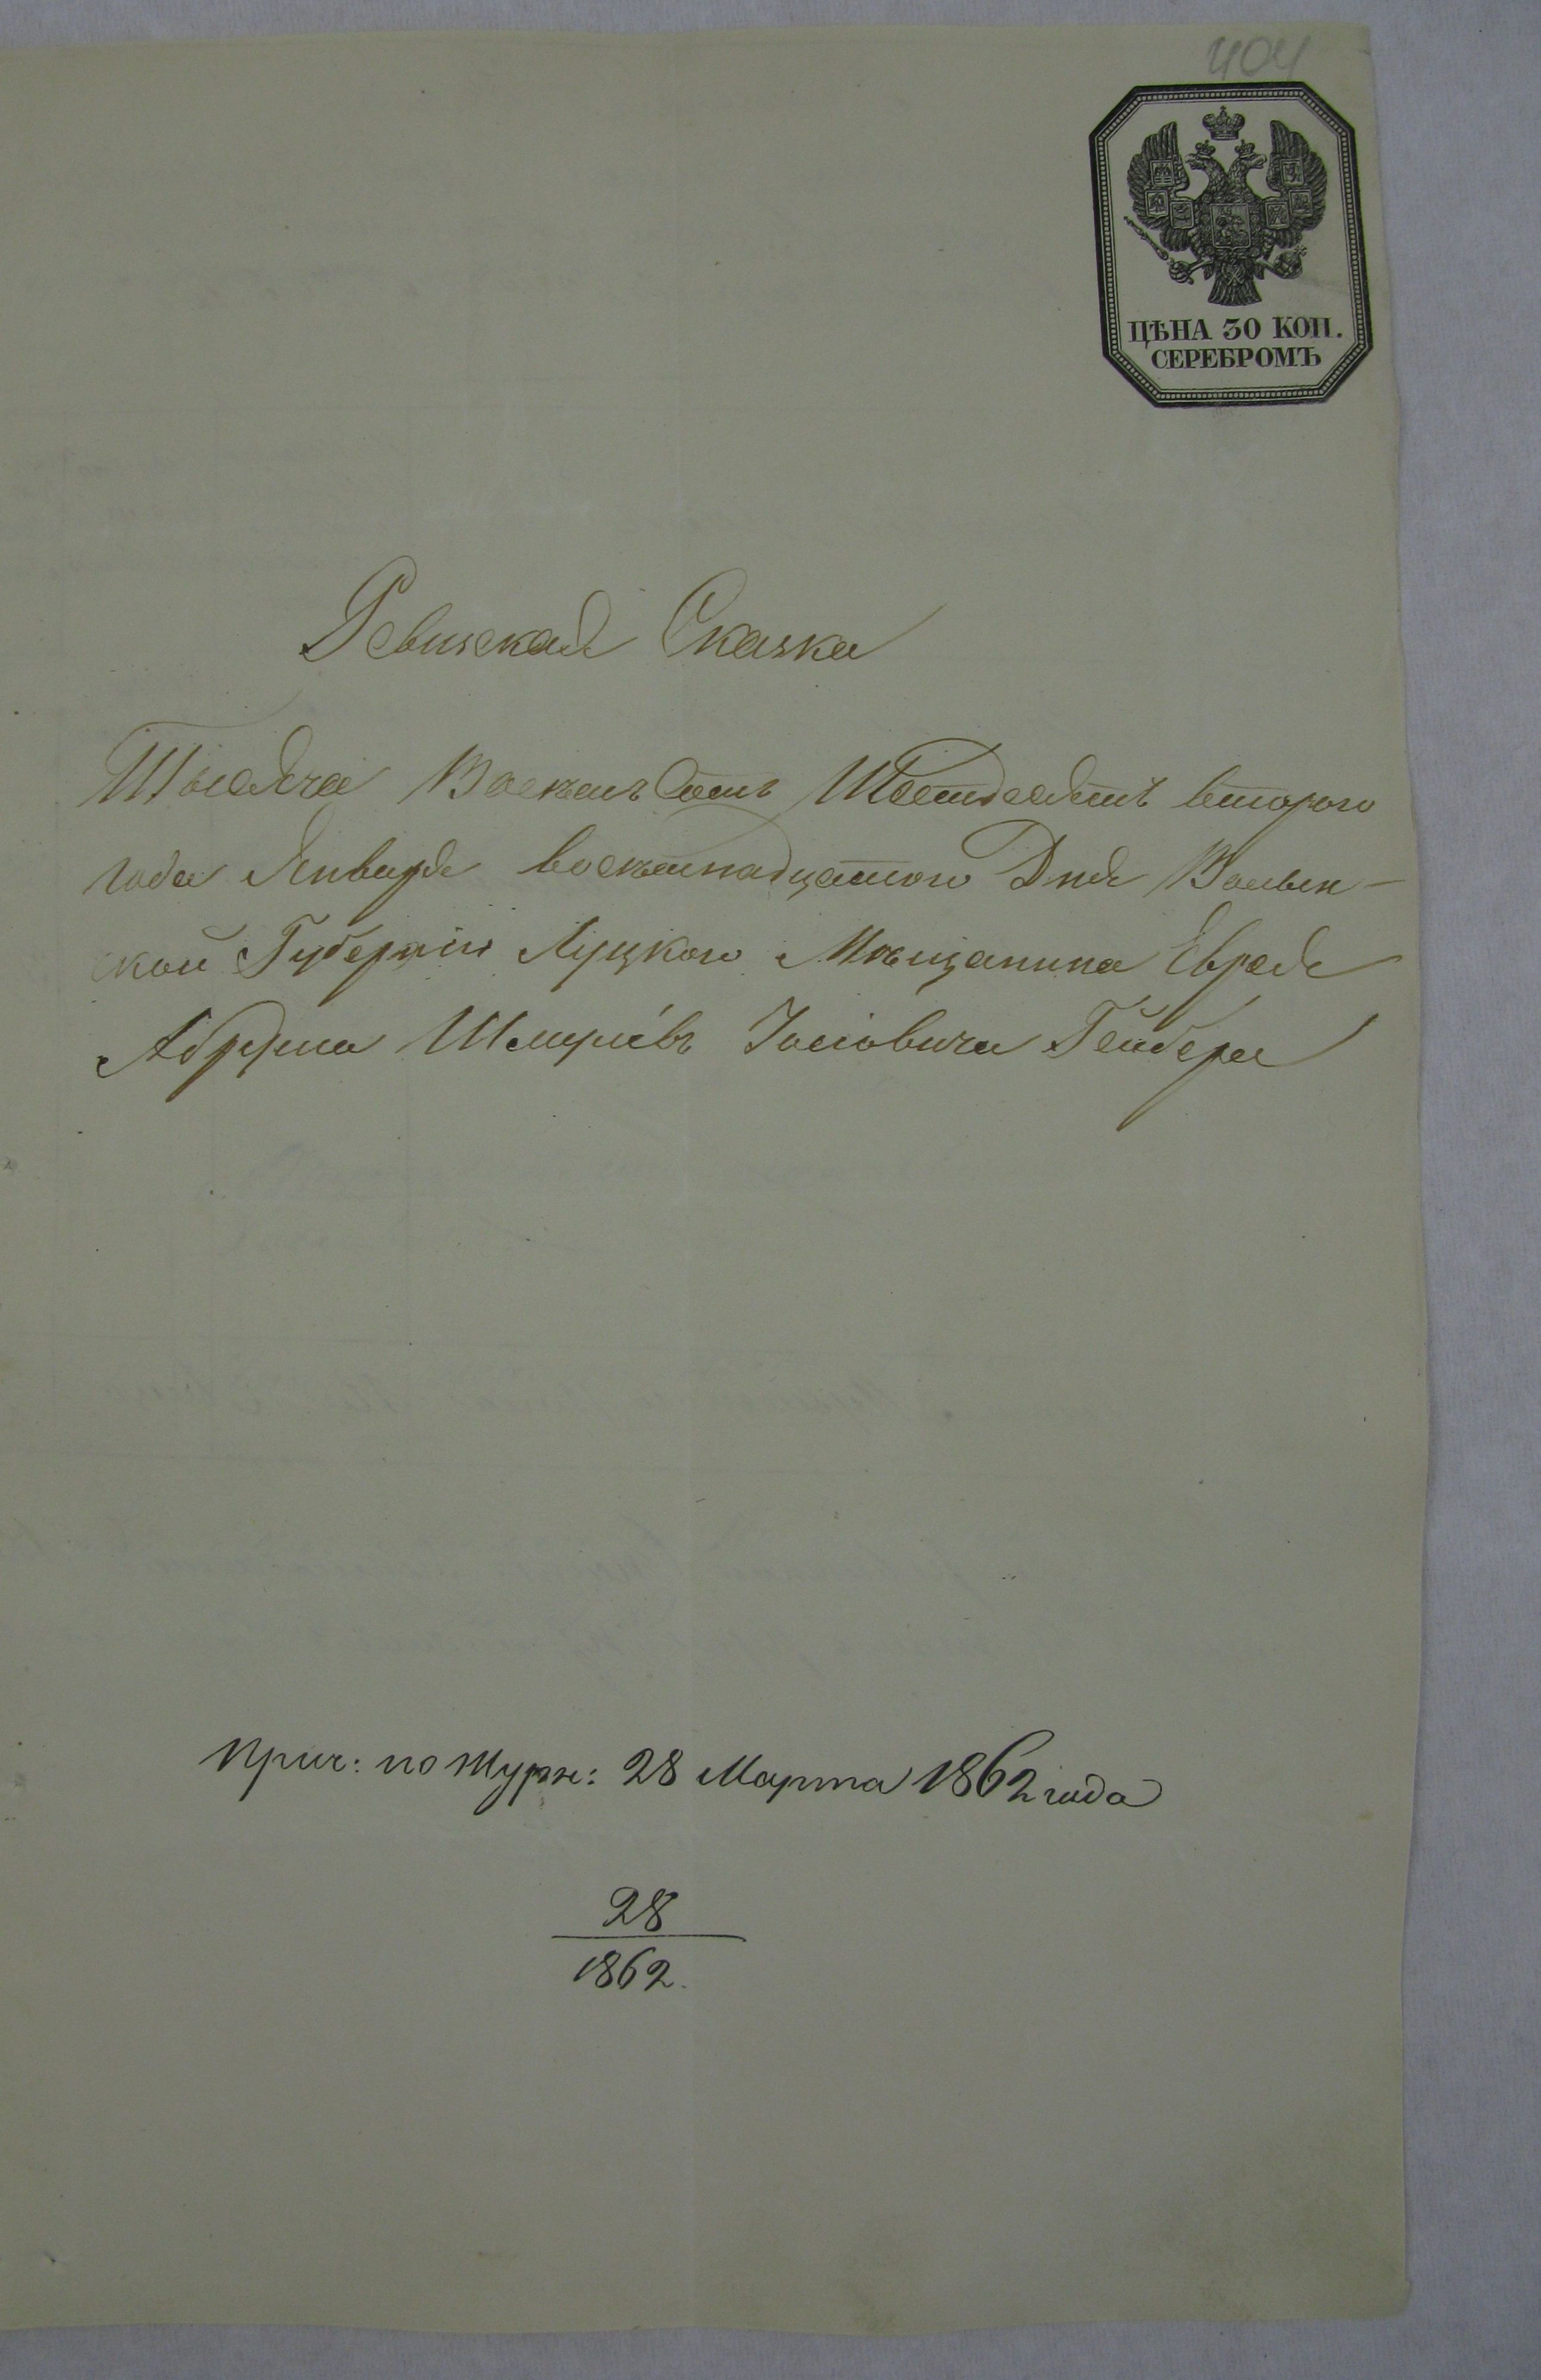 404
ЦѢНА 30 КОП.
СЕРЕБРОМЪ
Ревизская Сказка
Тысяча Восемь Сотъ Шестьдесятъ втораго
года Января восемнадцатого Дня Волын-
ской Губерніи Луцкого Мѣщанина Еврея
Абрума Шмулёвъ Іосіовича Гейбера
Прич: по Журн: 28 Марта 1862 года
28
1862.